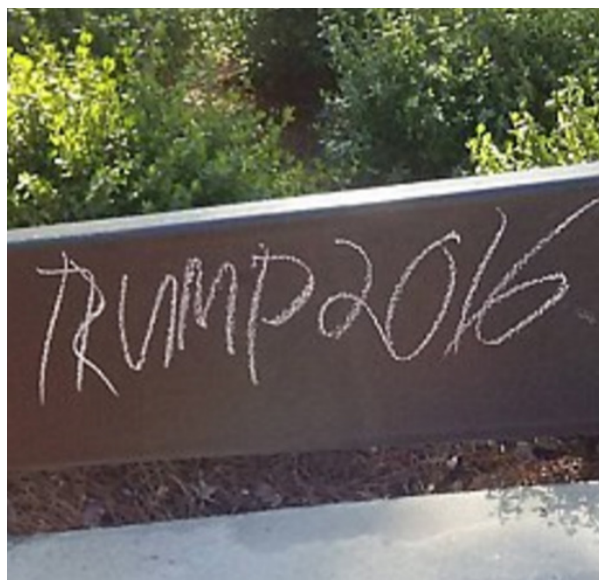 TRUMP 2016